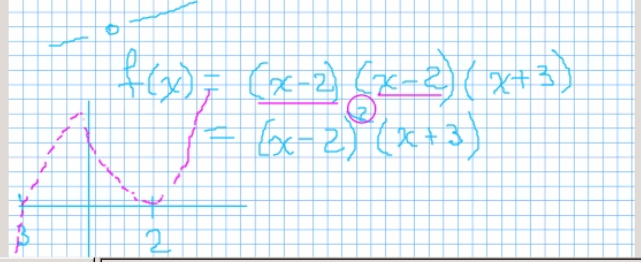 f(x) = (x-2)(x-2)(x+3)
= (x-2)² (x+3)
3 2